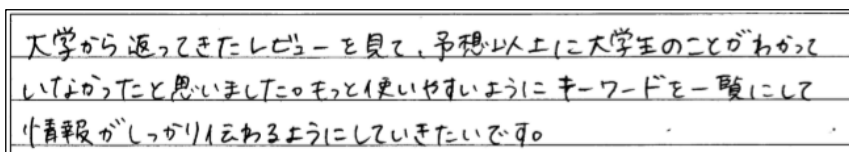 大学から返ってきたレビューを見て、予想以上に大学生のことがわかって
いなかったと思いました。もっと使いやすいようにキーワードを一覧にして
情報がしっかり伝わるようにしていきたいです。